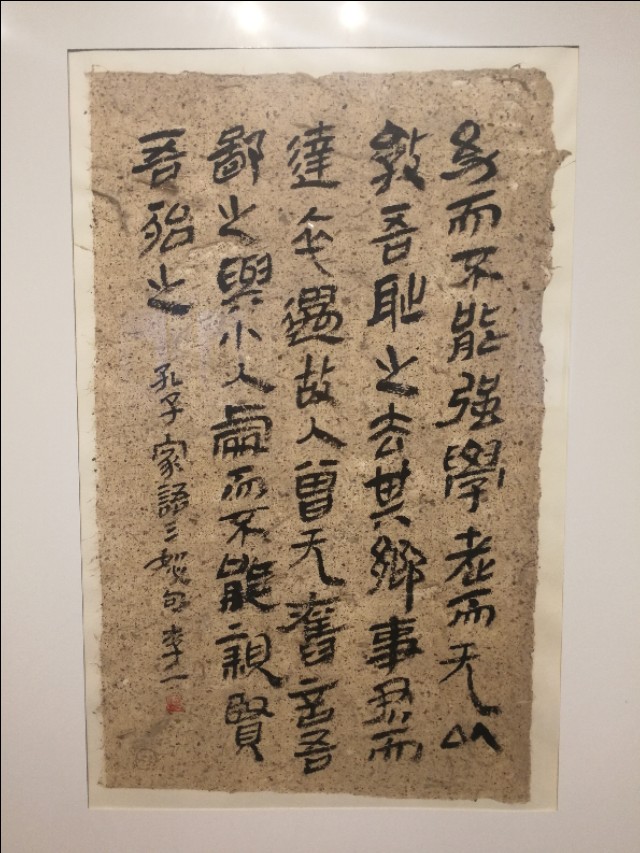 幼而不能强學老而无以
教吾耻之去其鄉事君而
達卒遇故人曾无舊言吾
鄙之與小人處而不能親賢
吾殆之 孔子家語三恕句 李一